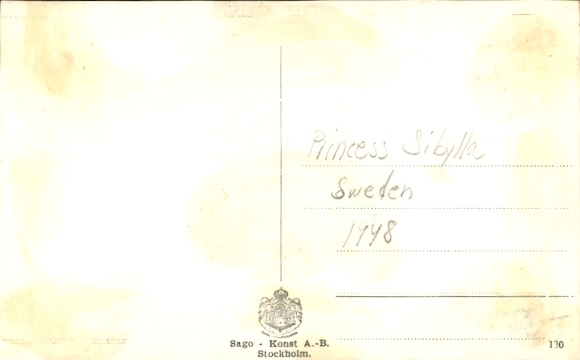 Princess Sibylla
Sweden
1948
Sago - Konst A.-B.
Stockholm.
130